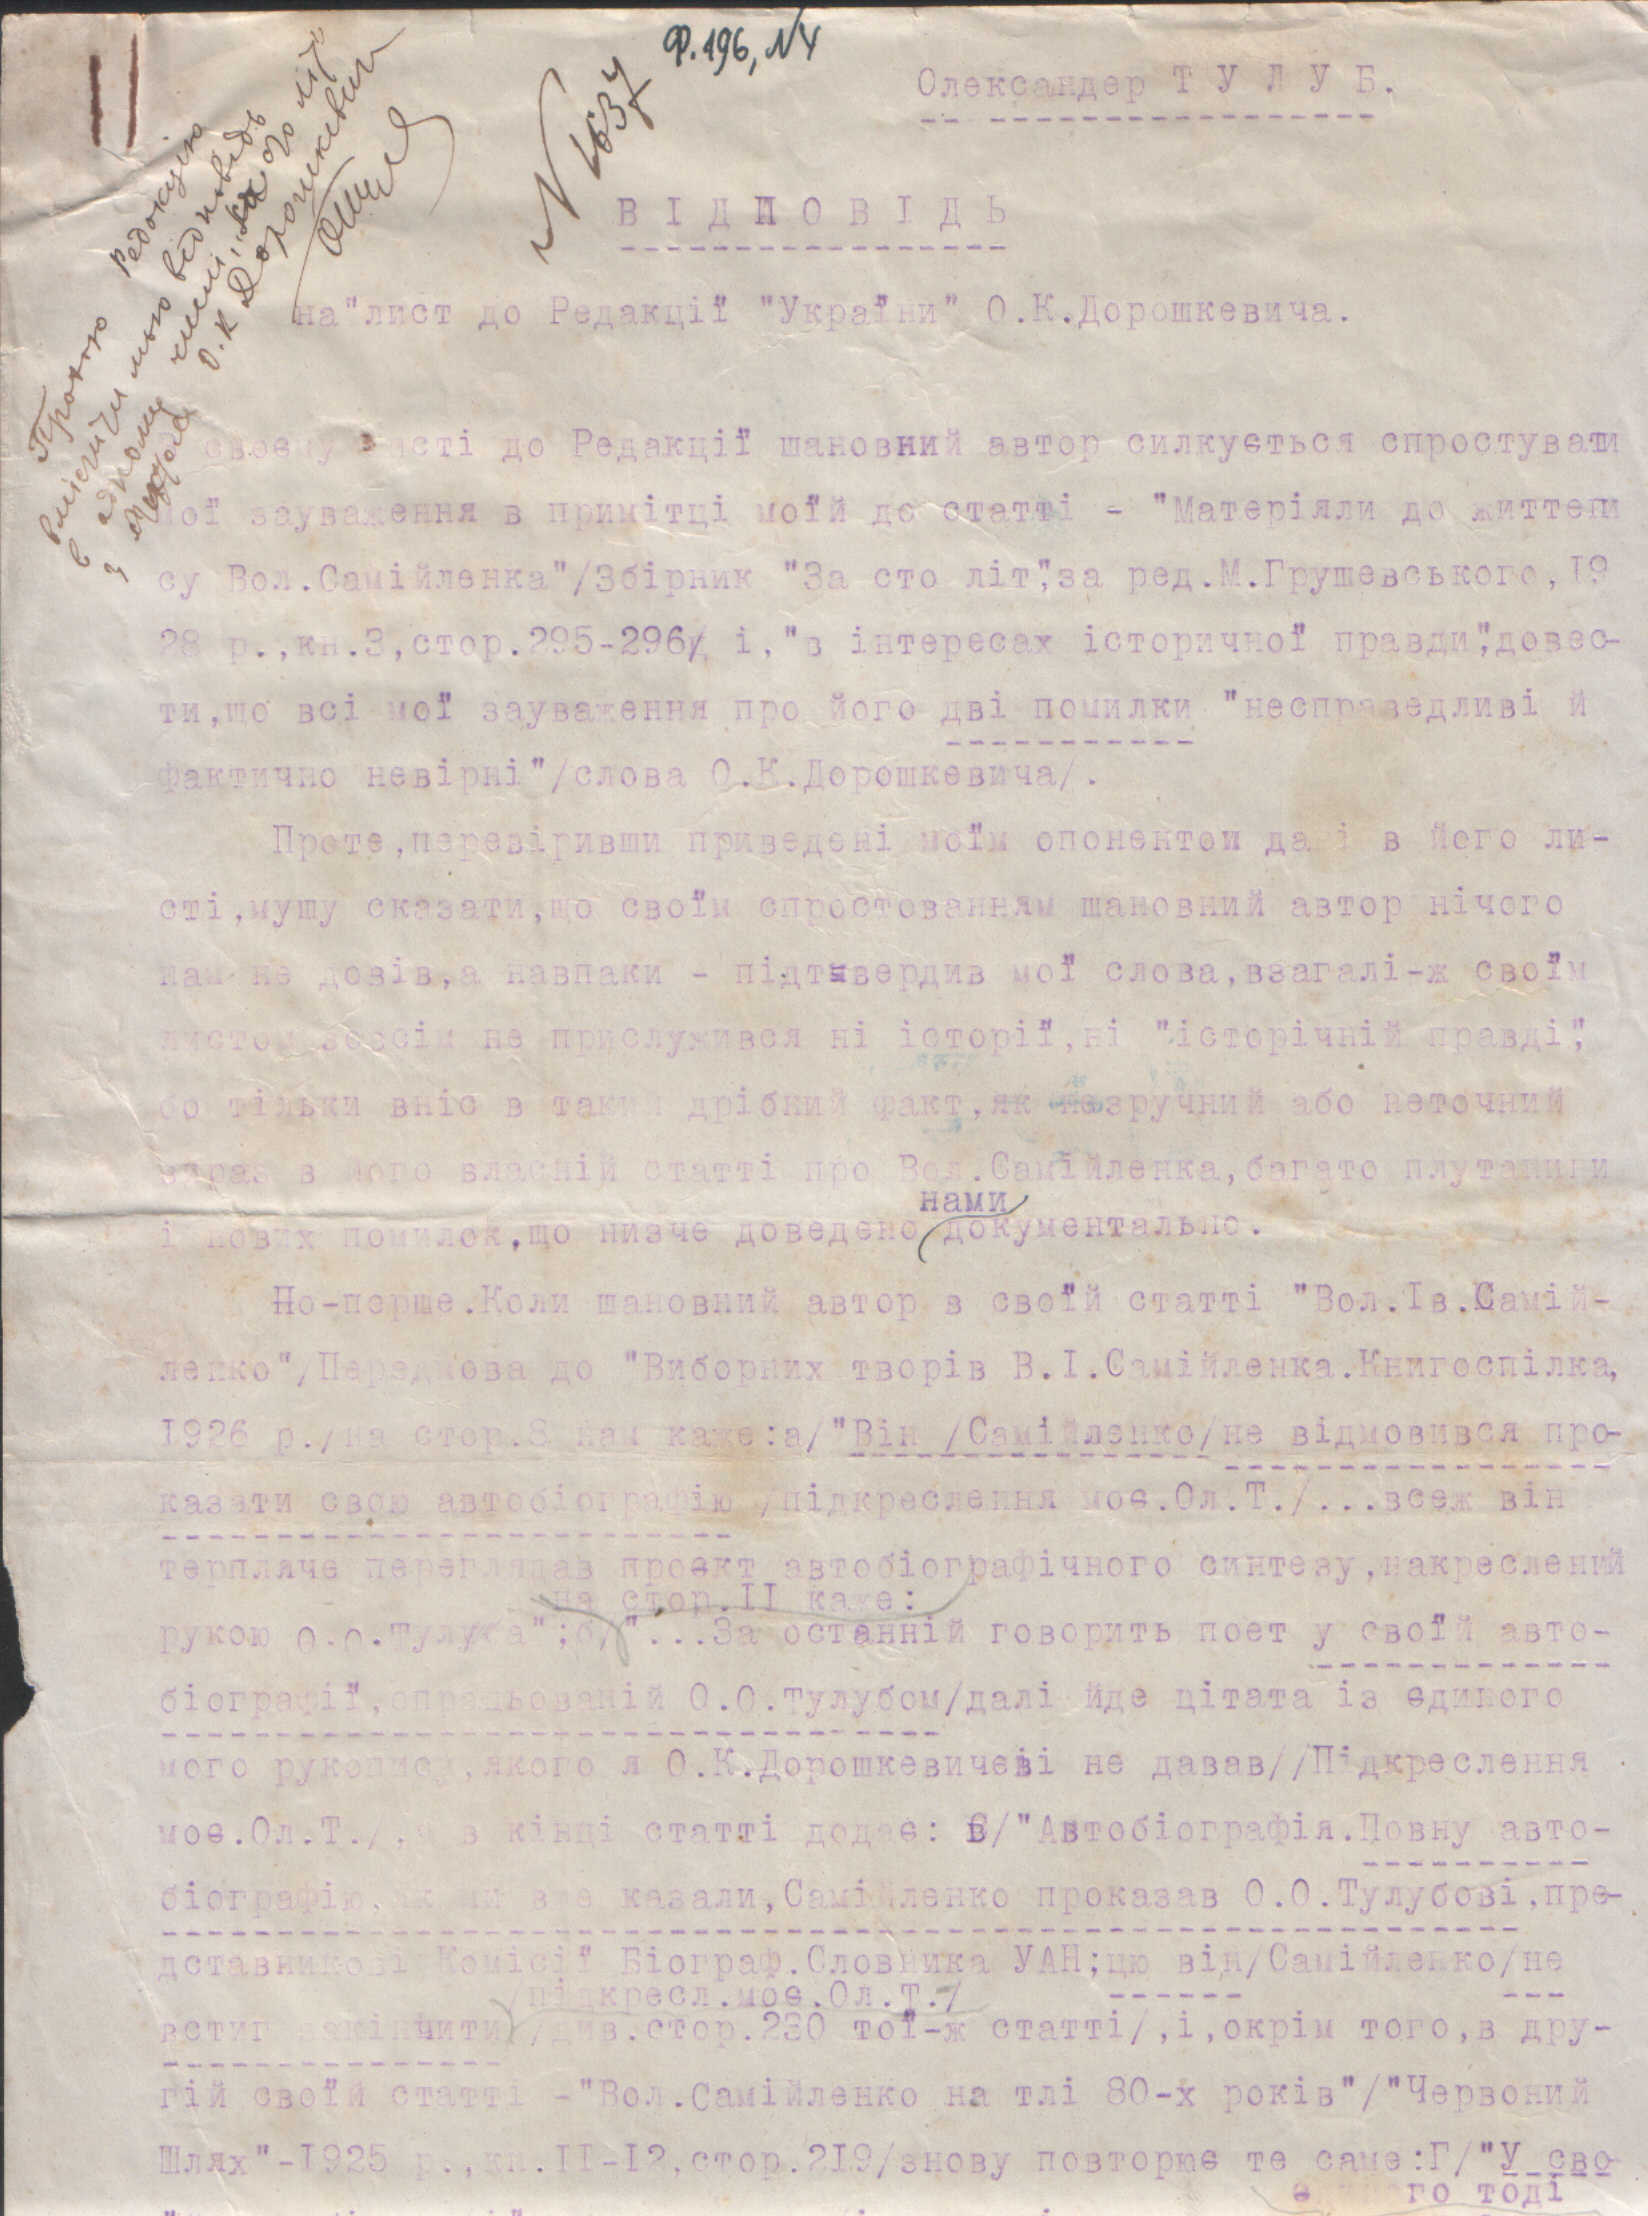 Ф.196, №4
№ 1637
Прохаю Редакцію
вмістити мою відповідь
в одному числі
з
О.К. Дорошкевича
Олександер Т У Л У Б.
В І Д П О В І Д Ь
на"лист до Редакції "України" О.К.Дорошкевича.
своєму листі до Редакції шановний автор силкується спростувати
мої зауваження в примітці моїй до статті - "Матеріяли до життепи
су Вол.Самійленка"/Збірник "За сто літ",за ред.М.Грушевського,І9
28 р.,кн.3,стор.295-296/ і,"в інтересах історичної правди",довес-
ти,що всі мої зауваження про його дві помилки "несправедливі й
фактично невірні"/слова О.К.Дорошкевича/.
Проте,перевіривши приведені моїм опонентом дані в його ли-
сті,мушу сказати,що своїм спростованням шановний автор нічого
нам не довів,а навпаки - підтвердив мої слова,взагалі-ж своїм
листом зовсім не прислужився ні історії,ні "історічній правді",
бо тільки вніс в такий дрібний факт,як незручний або неточний
вираз в його власній статті про Вол.Самійленка,багато плутанини
нами
і нових помилок,що низче доведено документально.
По-перше.Коли шановний автор в своїй статті "Вол.Ів.Самій-
ленко"/Передмова до "Виборних творів В.І.Самійленка.Книгоспілка,
І926 р./на стор.8 нам каже:а/"Він /Самійленко/не відмовився про-
казати свою автобіографію /підкреслення моє.Ол.Т./...всеж він
терпляче переглядав проєкт автобіографічного синтезу,накреслений
на стор.ІІ каже:
рукою О.О.Тулуба";б/"...За останній говорить поет у своїй авто-
біографії,опрацьованій О.О.Тулубом/далі йде цітата із єдиного
мого рукопису,якого я О.К.Дорошкевичеві не давав//Підкреслення
моє.Ол.Т./,а в кінці статті додає: В/"Автобіографія.Повну авто-
біографію,як ми вже казали,Самійленко проказав О.О.Тулубові,пре-
дставникові Комісії Біограф.Словника УАН;цю він/Самійленко/не
/підкресл.моє.Ол.Т./
встиг закінчити /див.стор.230 тої-ж статті/,і,окрім того,в дру-
гій своїй статті -"Вол.Самійленко на тлі 80-х років"/"Червоний
Шлях"-І925 р.,кн.ІІ-І2,стор.2І9/знову повторює те саме:Г/"У сво
тоді